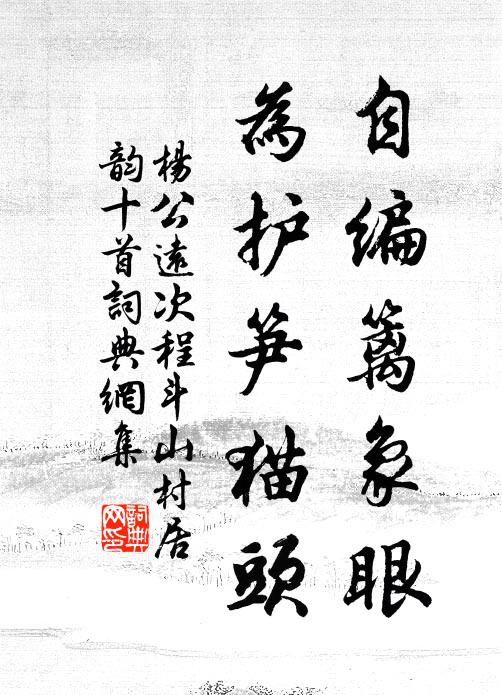 自编篱象眼
為护笋猫頭
楊公遠次程斗山村居
韵十首詞典網集